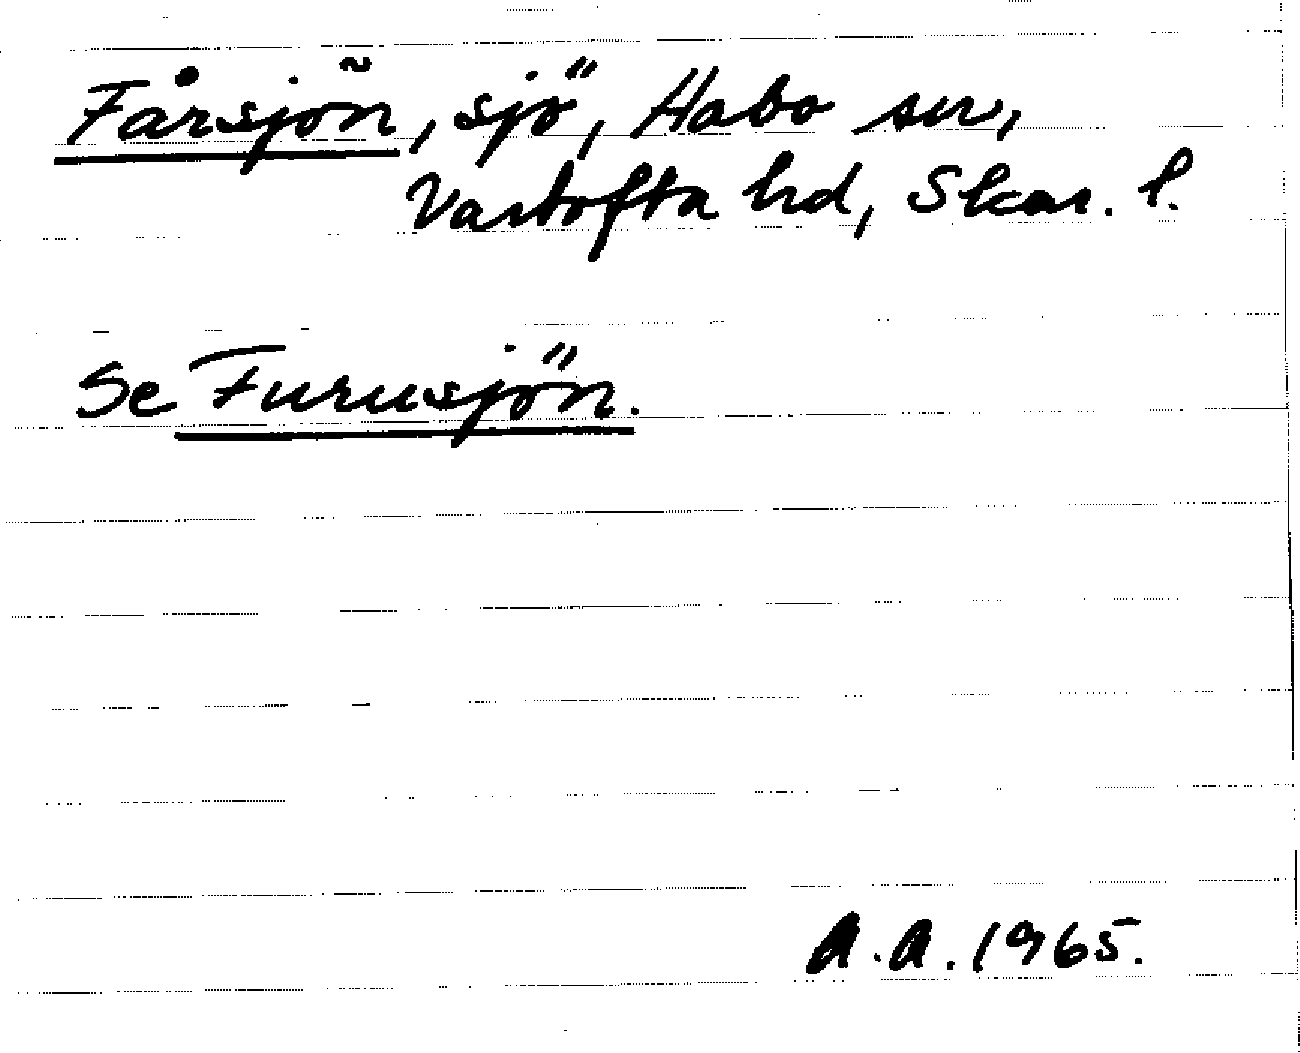 Fårsjön, sjö, Habo sn,
Vartofta hd, Skar. l.
Se Furusjön.
A.A. 1965.